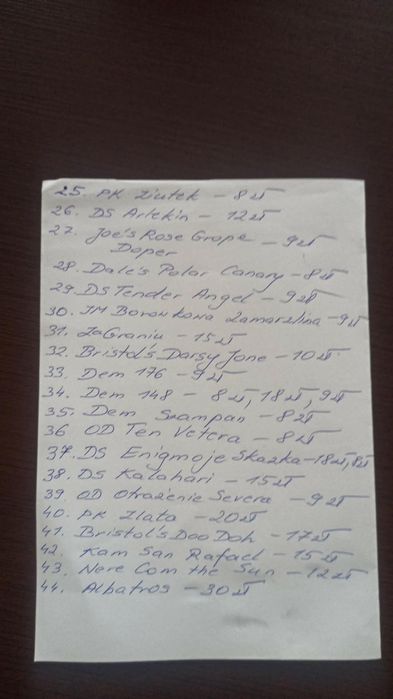 25. PK Ziutek – 8 zł
26. DS Arlekin – 12 zł
27. Joe's Rose Grope
Doper – 9 zł
28. Dale's Polar Canary – 8 zł
29. DS Tender Angel – 9 zł
30. JM Borowkowa Zamarzlina – 9 zł
31. ZaGraniu – 15 zł
32. Bristol's Darsy Jone – 10 zł
33. Dem 176 – 9 zł
34. Dem 148 – 8 zł, 18 zł, 9 zł
35. Dem Szampan – 8 zł
36 OD Ten Vetera – 8 zł
37. DS Enigmoje Skazka – 18 zł, 8 zł
38. DS Kalahari – 15 zł
39 OD Otrazenie Severa – 9 zł
40. PK Zlata – 20 zł
41. Bristol's Doo Doh – 17 zł
42. Kam San Rafael – 15 zł
43. Nere Com the Sun – 12 zł
44. Albatros – 30 zł